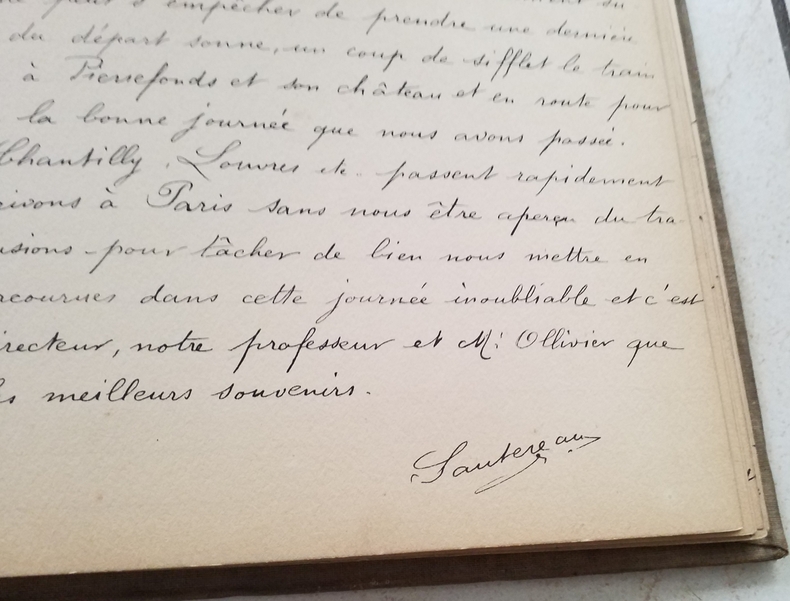 peux s'empêcher de prendre une dernière
du départ sonne, un coup de sifflet le train
à Pierrefonds et son château et en route pour
la bonne journée que nous avons passée.
Chantilly, Louvres etc. passent rapidement
à Paris sans nous être aperçu du tra
pour tâcher de bien nous mettre en
dans cette journée inoubliable et c'est
recteur, notre professeur et Mr Ollivier que
meilleurs souvenirs.
Sautereau